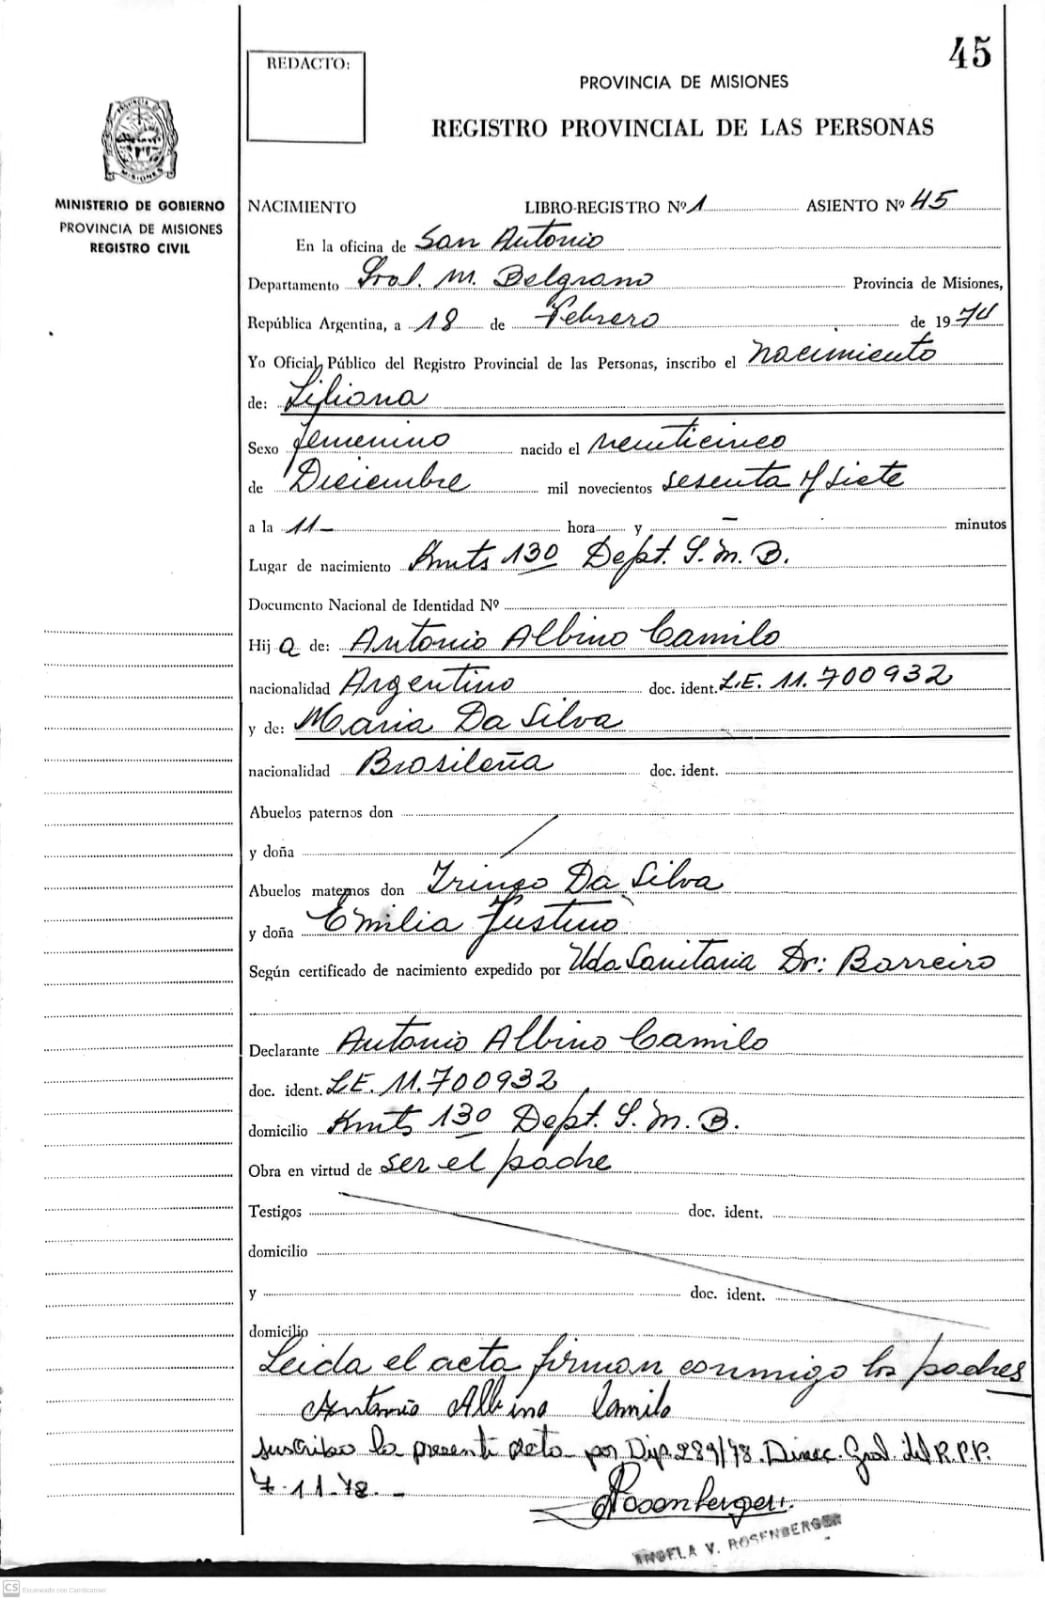 45
REDACTO:
PROVINCIA DE MISIONES
REGISTRO PROVINCIAL DE LAS PERSONAS
MINISTERIO DE GOBIERNO
PROVINCIA DE MISIONES
REGISTRO CIVIL
NACIMIENTO LIBRO-REGISTRO Nº 1 ASIENTO Nº 45
En la oficina de San Antonio
Departamento Gral. M. Belgrano Provincia de Misiones,
República Argentina, a 18 de Febrero de 1974
Yo Oficial Público del Registro Provincial de las Personas, inscribo el nacimiento
de: Liliana
Sexo femenino nacido el veinticinco
de Diciembre mil novecientos sesenta y siete
a la 11 — hora y — minutos
Lugar de nacimiento Kmts 130 Dept. G. M. B.
Documento Nacional de Identidad Nº
Hij a de: Antonio Albino Camilo
nacionalidad Argentino doc. ident. L.E. 11.700932
y de: Maria Da Silva
nacionalidad Brasileña doc. ident.
Abuelos paternos don
y doña
Abuelos maternos don Da Silva
y doña Emilia Justino
Según certificado de nacimiento expedido por Uda Sanitaria Dr: Barreiro
Declarante Antonio Albino Camilo
doc. ident. L.E. 11.700932
domicilio Kmts 130 Dept. G. M. B.
Obra en virtud de ser el padre
Testigos doc. ident.
domicilio
y doc. ident.
domicilio
Leida el acta firman conmigo los padres
Antonio Albino Camilo
suscribo la presente acta por Dip. 289/78. Direc. Gral. del R.P.P.
7-11-78. -
Rosenberger
ANGELA V. ROSENBERGER
CS Escaneado con CamScanner